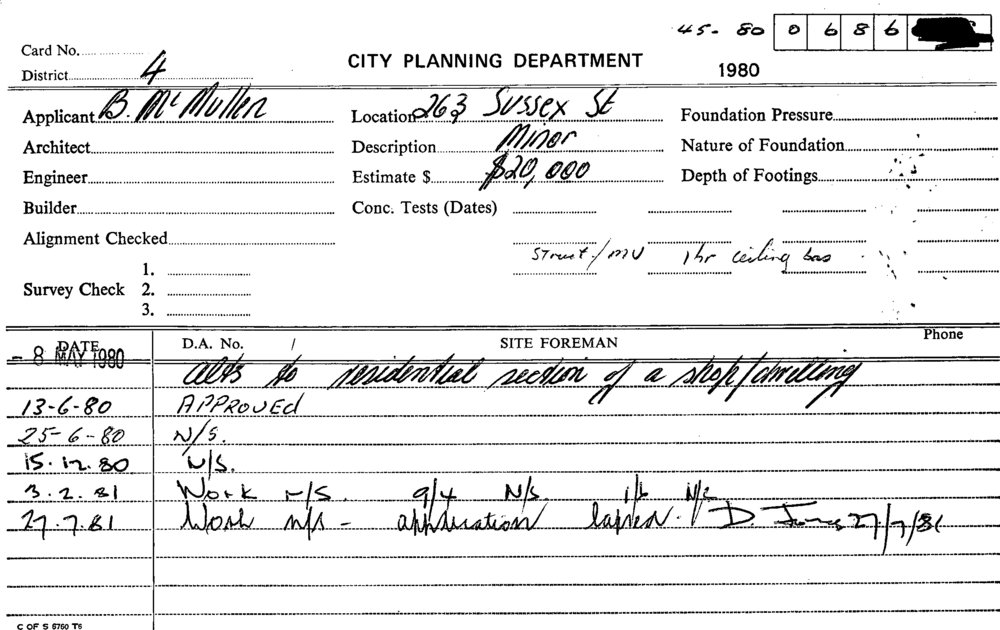 45-80 0 6 8 6
Card No.
District 4
CITY PLANNING DEPARTMENT
1980
Applicant B. McMullen
Location 263 Sussex St
Foundation Pressure
Architect
Description Minor
Nature of Foundation
Engineer
Estimate $ $20,000
Depth of Footings
Builder
Conc. Tests (Dates)
Alignment Checked
Struct/MU 1hr ceiling
1.
Survey Check 2.
3.
DATE D.A. No. / SITE FOREMAN Phone
- 8 MAY 1980 alts to residential section of a shop/dwelling
13-6-80 APPROVED
25-6-80 N/S.
15.12.80 N/S.
3.2.81 Work N/S. 9/4 N/S. 1/6 N/S
27.7.81 Work n/s - application lapsed. D 27/7/81
C OF S 6760 T6